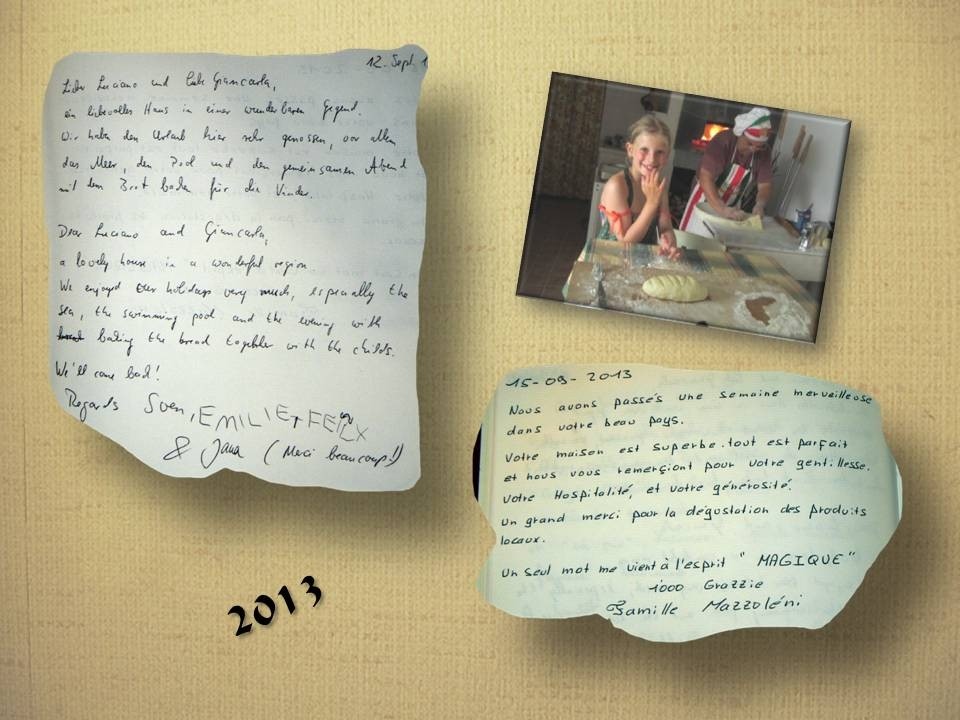 12. Sept. 1
Lieber Luciano und liebe Giancarla,
ein liebevolles Haus in einer wunderbaren Gegend.
Wir haben den Urlaub hier sehr genossen, vor allem
das Meer, den Pool und den gemeinsamen Abend
mit dem Brot backen für die Kinder.
Dear Luciano and Giancarla,
a lovely house in a wonderful region
We enjoyed our holidays very much, especially the
sea, the swimming pool and the evening with
baking the bread together with the childs.
We'll come back!
Regards Sven, EMILIE + FELIX
& Jana (Merci beaucoup!!)
15-09-2013
Nous avons passés une semaine merveilleuse
dans votre beau pays.
Votre maison est superbe. tout est parfait
et nous vous remerçiont pour votre gentillesse.
votre Hospitalité, et votre générosité.
un grand merci pour la dégustation des produits
locaux.
un seul mot me vient à l'esprit " MAGIQUE "
1000 Grazzie
Famille Mazzoléni
2013